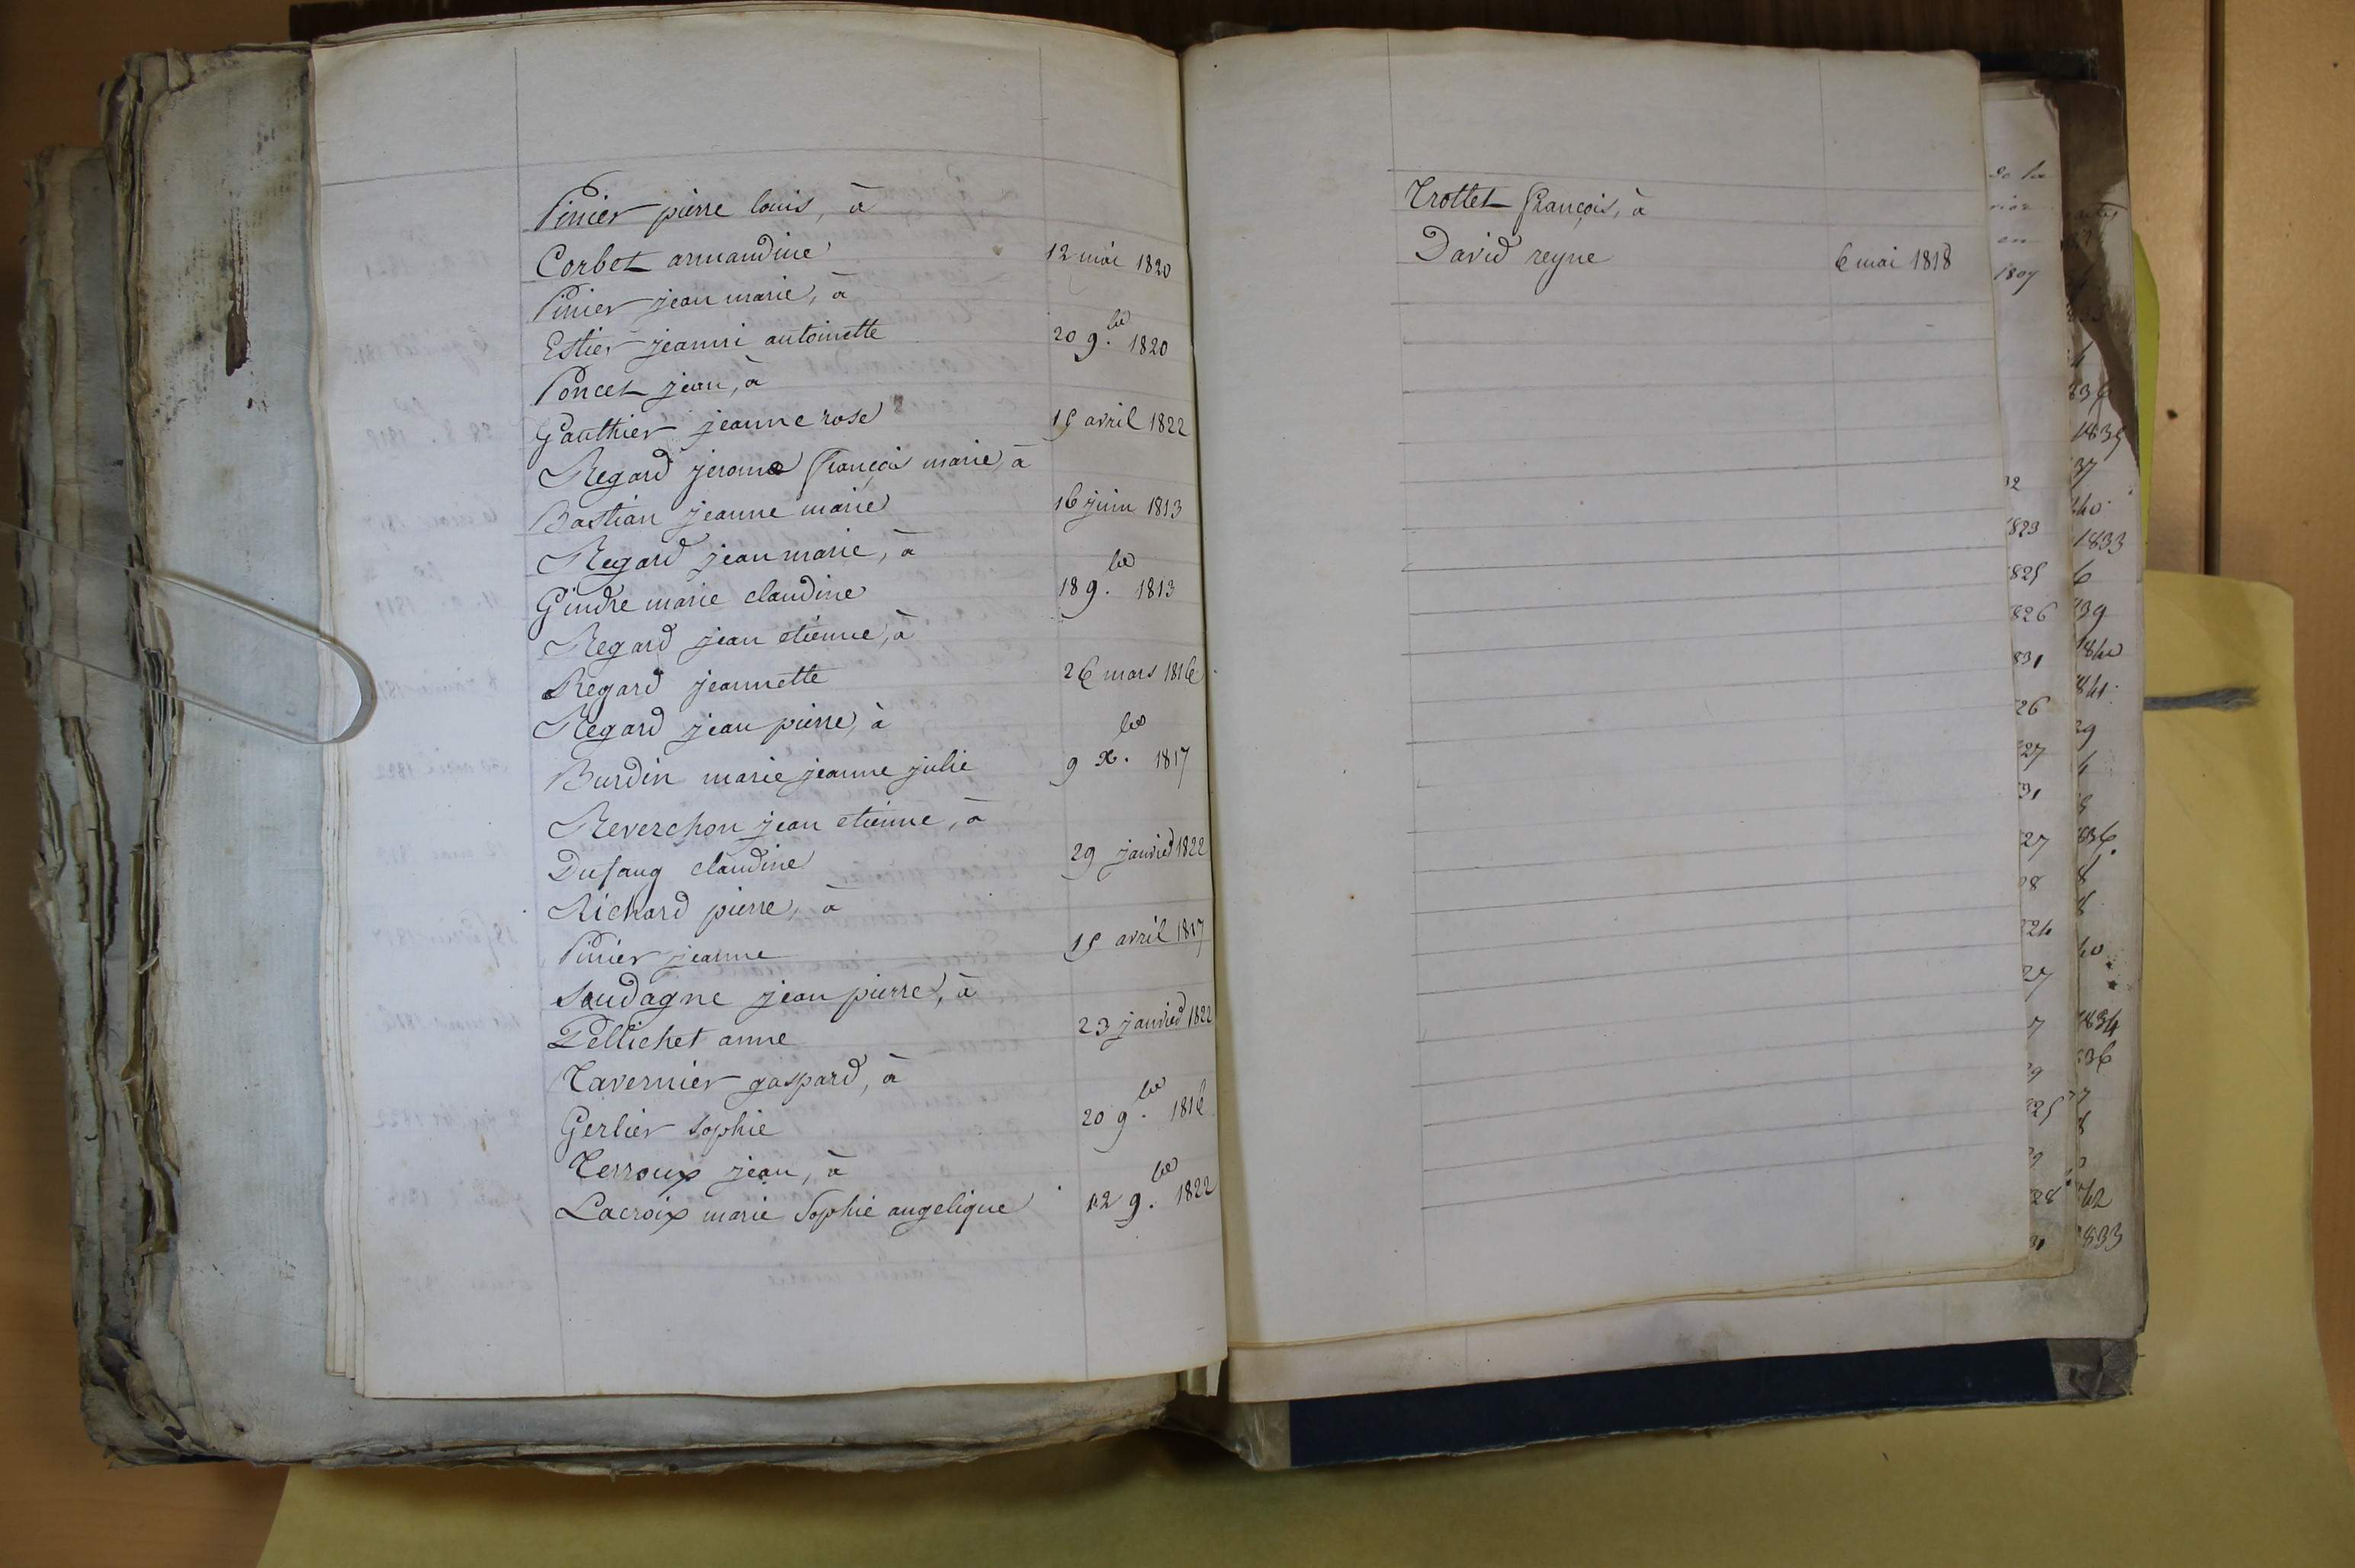 Pinier pierre louis, à
Corbet armandine 12 mai 1820
Pinier jean marie, à
Estier jeanne antoinette 20 9.bre 1820
Poncet jean, à
Gauthier jeanne rose 15 avril 1822
Regard jerome françois marie, à
Bastian jeanne marie 16 juin 1813
Regard jean marie, à
Gindre marie claudine 18 9.bre 1813
Regard jean etienne, à
Regard jeannette 26 mars 1816
Regard jean pierre, à
Burdin marie jeanne julie 9 X.bre 1817
Reverchon jean etienne, à
Dufaug claudine 29 janvier 1822
Richard pierre, à
Pinier jeanne 15 avril 1817
Saudagne jean pierre, à
Pellichet anne 23 janvier 1822
Tavernier gaspard, à
Gerlier sophie 20 9.bre 1816
Terroux jean, à
Lacroix marie Sophie angelique 12 9.bre 1822
Trottet françois, à
David reyne 6 mai 1818
de la
en
1807
1835
37
1833
1823
825
826
39
1840
831
841
26
27
31
27
836
28
824
27
1834
36
825
28
42
1833